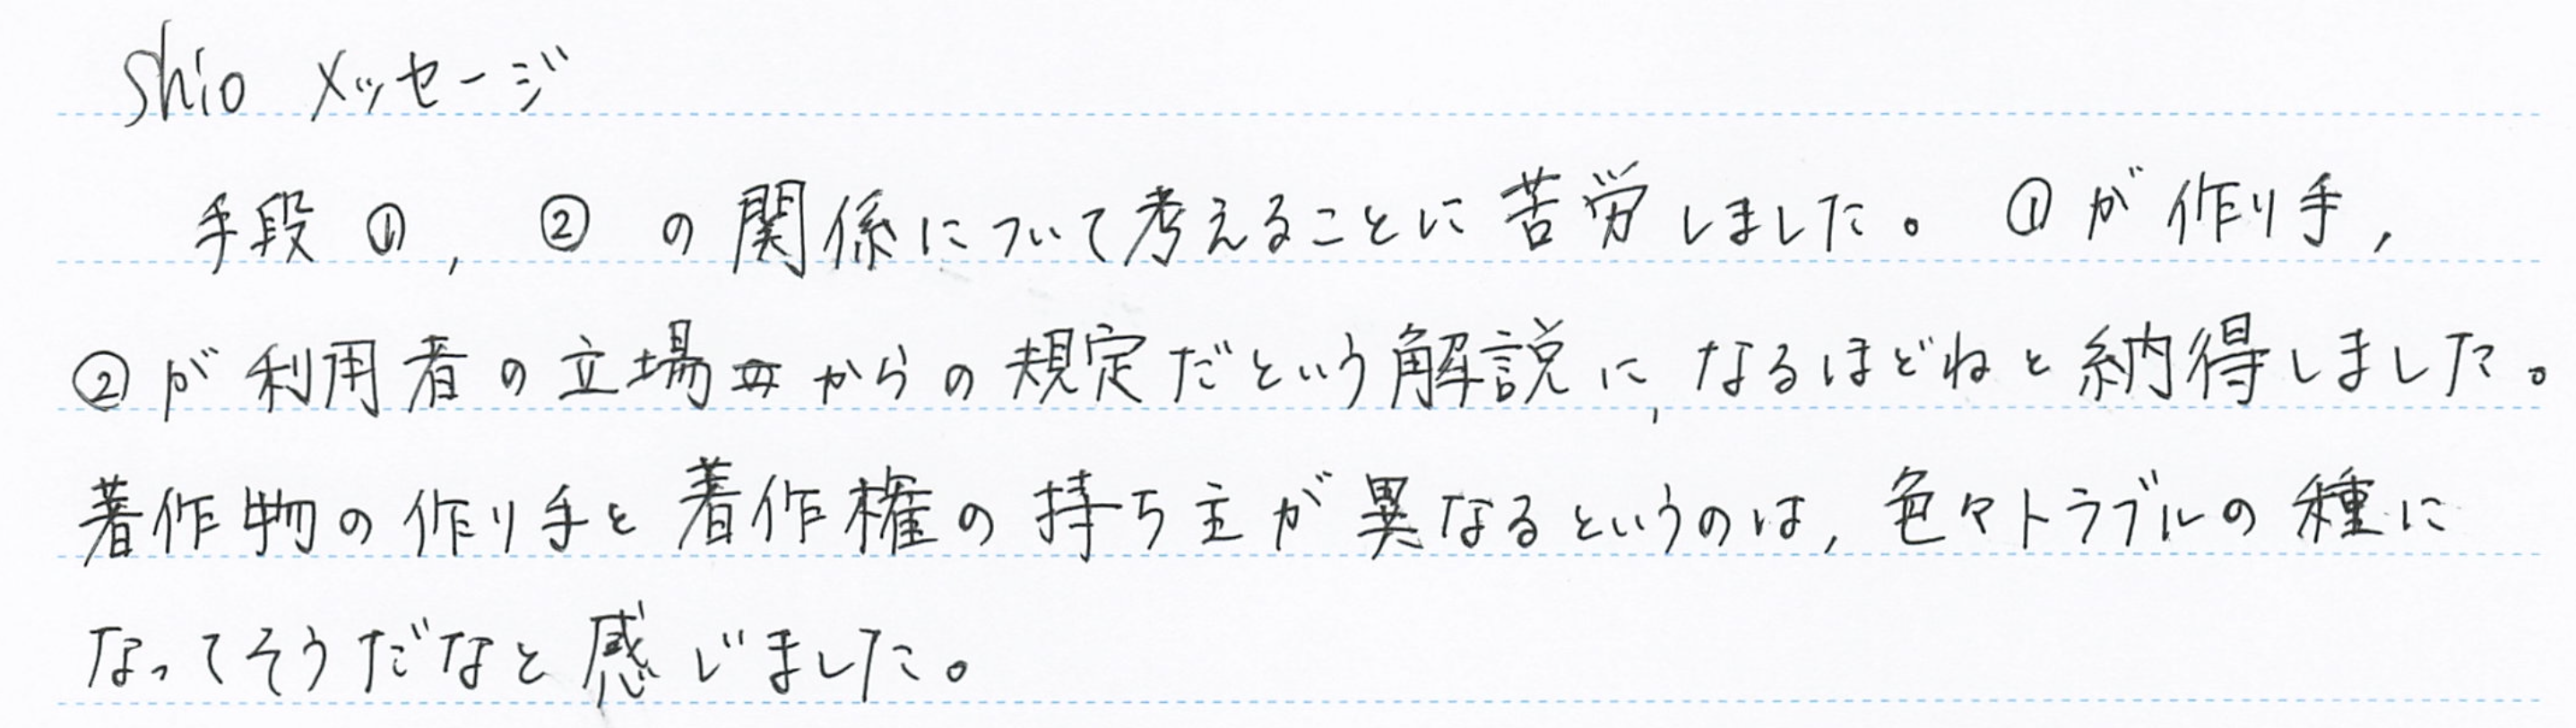 Shio メッセージ
手段①, ②の関係について考えることに苦労しました。①が作り手,
②が利用者の立場からの規定だという解説に, なるほどねと納得しました。
著作物の作り手と著作権の持ち主が異なるというのは, 色々トラブルの種に
なってそうだなと感じました。